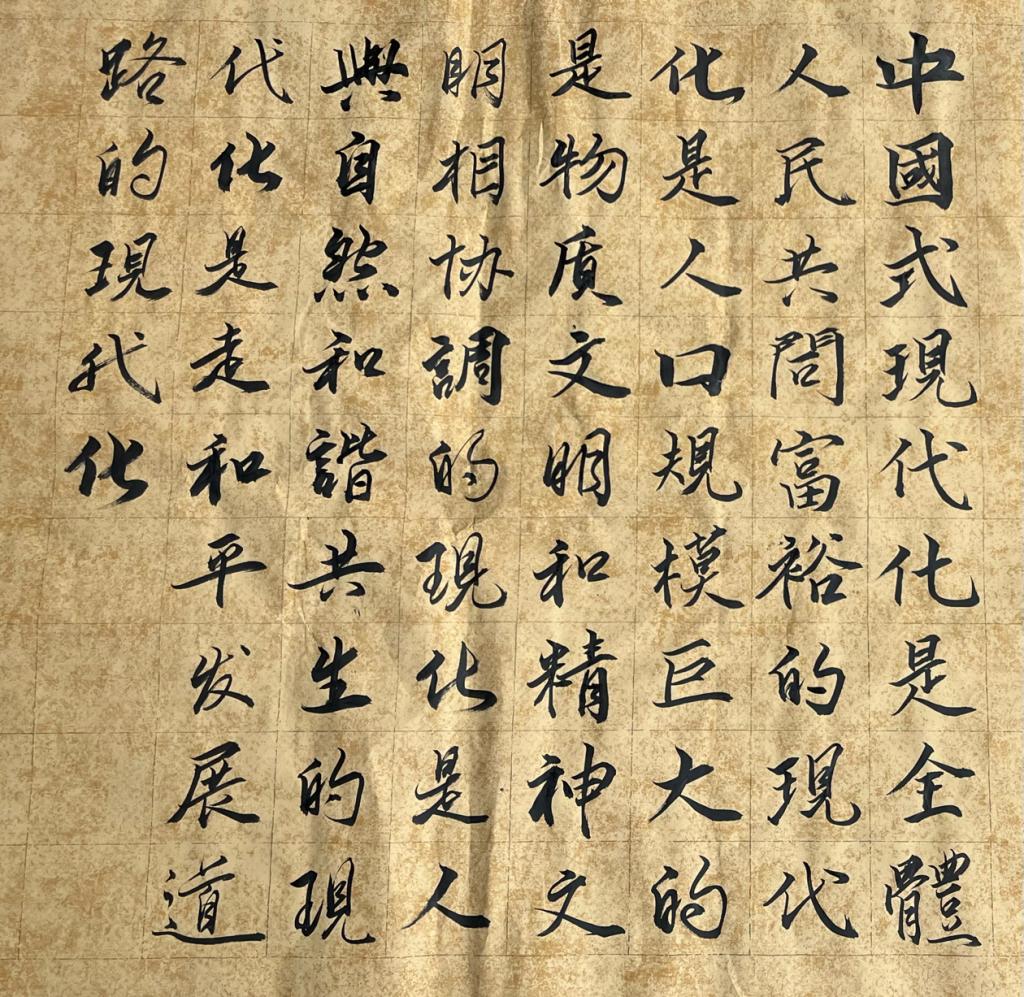 中國式現代化是全體
人民共問富裕的現代
化是人口規模巨大的
是物质文明和精神文
明相协調的現代化是人
與自然和諧共生的現
代化是走和平发展道
路的現代化